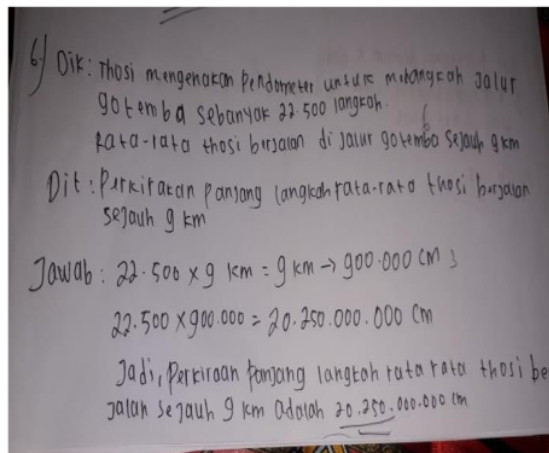 6) Dik: Thosi mengenakan Pendometer untuk melangkah Jalur
gotemba sebanyak 22.500 langkah.
Rata-rata thosi berjalan di Jalur gotemba sejauh 9 km
Dit: Perkirakan panjang langkah rata-rata thosi berjalan
sejauh 9 km
Jawab: 22.500 x 9 km = 9 km → 900.000 cm
22.500 x 900.000 = 20.250.000.000 cm
Jadi, Perkiraan Panjang langkah rata rata thosi be
jalan sejauh 9 km adalah 20.250.000.000 cm